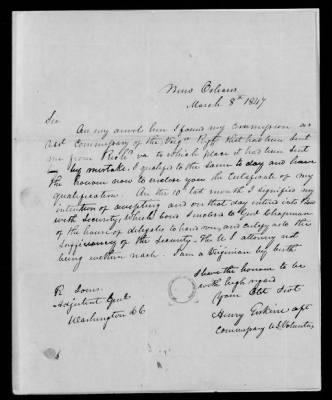 New Orleans
March 8th 1847
Sir
On my arrival here I found my Commission as
asst Commissary of the Virga Regt that had been sent
me from Richd va. to which place it had been sent
by mistake. I qualified to the same to day and have
the honour now to enclose you the Certificate of my
qualification. On the 10th last month I signified my
intention of accepting and on that day entered into Bond
with Security, which bond I enclosed to Genl Chapman
of the house of delegates to hand over, and certify as to the
Sufficiency of the Security. The U S attorney not
being within reach. I am a Virginian by birth
I have the honour to be
with high regard
Your Obt Svt
Henry Erskine
Commissary U.S. Volunteers
R Jones
Adjutant Genl
Washington DC